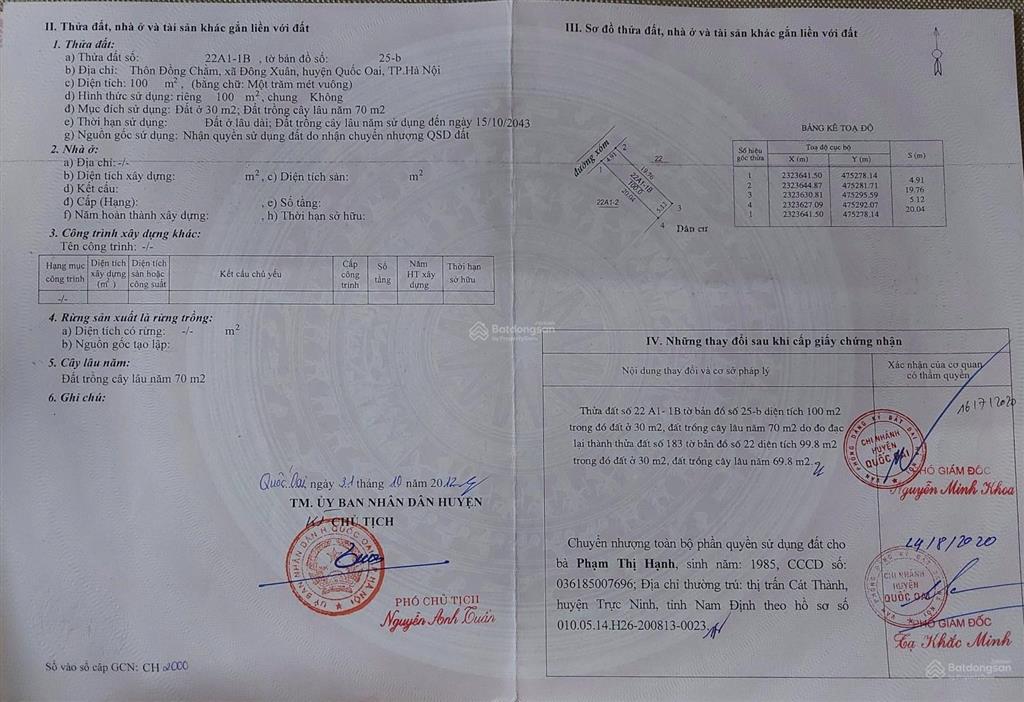 II. Thửa đất, nhà ở và tài sản khác gắn liền với đất
1. Thửa đất:
a) Thửa đất số: 22A1-1B , tờ bản đồ số: 25-b
b) Địa chỉ: Thôn Đồng Chằm, xã Đông Xuân, huyện Quốc Oai, TP.Hà Nội
c) Diện tích: 100 m², (bằng chữ: Một trăm mét vuông)
d) Hình thức sử dụng: riêng 100 m², chung Không
đ) Mục đích sử dụng: Đất ở 30 m2; Đất trồng cây lâu năm 70 m2
e) Thời hạn sử dụng: Đất ở lâu dài; Đất trồng cây lâu năm sử dụng đến ngày 15/10/2043
g) Nguồn gốc sử dụng: Nhận quyền sử dụng đất do nhận chuyển nhượng QSD đất
2. Nhà ở:
a) Địa chỉ:-/-
b) Diện tích xây dựng: m², c) Diện tích sàn: m²
d) Kết cấu:
đ) Cấp (Hạng): , e) Số tầng:
f) Năm hoàn thành xây dựng: , h) Thời hạn sở hữu:
3. Công trình xây dựng khác:
Tên công trình: -/-
Hạng mục công trình
Diện tích xây dựng (m²)
Diện tích sàn hoặc công suất
Kết cấu chủ yếu
Cấp công trình
Số tầng
Năm HT xây dựng
Thời hạn sở hữu
-/-
4. Rừng sản xuất là rừng trồng:
a) Diện tích có rừng: -/- m²
b) Nguồn gốc tạo lập:
5. Cây lâu năm:
Đất trồng cây lâu năm 70 m2
6. Ghi chú:
Quốc Oai ngày 31 tháng 10 năm 2012
TM. ỦY BAN NHÂN DÂN HUYỆN
KT CHỦ TỊCH
ỦY BAN NHÂN DÂN H. QUỐC OAI
HÀ NỘI
PHÓ CHỦ TỊCH
Nguyễn Anh Tuấn
Số vào sổ cấp GCN: CH 2000
III. Sơ đồ thửa đất, nhà ở và tài sản khác gắn liền với đất
đường xóm
1
2
3
4
4.91
19.76
5.12
20.04
22A1-1B
100.0
22
22A1-2
Dân cư
BẢNG KÊ TOẠ ĐỘ
Số hiệu góc thửa
Toạ độ cục bộ
X (m) Y (m)
S (m)
1 2323641.50 475278.14
4.91
2 2323644.87 475281.71
19.76
3 2323630.81 475295.59
5.12
4 2323627.09 475292.07
20.04
1 2323641.50 475278.14
IV. Những thay đổi sau khi cấp giấy chứng nhận
Nội dung thay đổi và cơ sở pháp lý
Xác nhận của cơ quan
có thẩm quyền
Thửa đất số 22 A1- 1B tờ bản đồ số 25-b diện tích 100 m2
trong đó đất ở 30 m2, đất trồng cây lâu năm 70 m2 do đo đạc
lại thành thửa đất số 183 tờ bản đồ số 22 diện tích 99.8 m2
trong đó đất ở 30 m2, đất trồng cây lâu năm 69.8 m2.
16/7/2020
VĂN PHÒNG ĐĂNG KÝ ĐẤT ĐAI
CHI NHÁNH
HUYỆN
QUỐC OAI
PHÓ GIÁM ĐỐC
Nguyễn Minh Khoa
Chuyển nhượng toàn bộ phần quyền sử dụng đất cho
bà Phạm Thị Hạnh, sinh năm: 1985, CCCD số:
036185007696; Địa chỉ thường trú: thị trấn Cát Thành,
huyện Trực Ninh, tỉnh Nam Định theo hồ sơ số
010.05.14.H26-200813-0023
24/8/2020
CHI NHÁNH
HUYỆN
QUỐC OAI
PHÓ GIÁM ĐỐC
Tạ Khắc Minh
Batdongsan
by PropertyGuru
Batdongsan